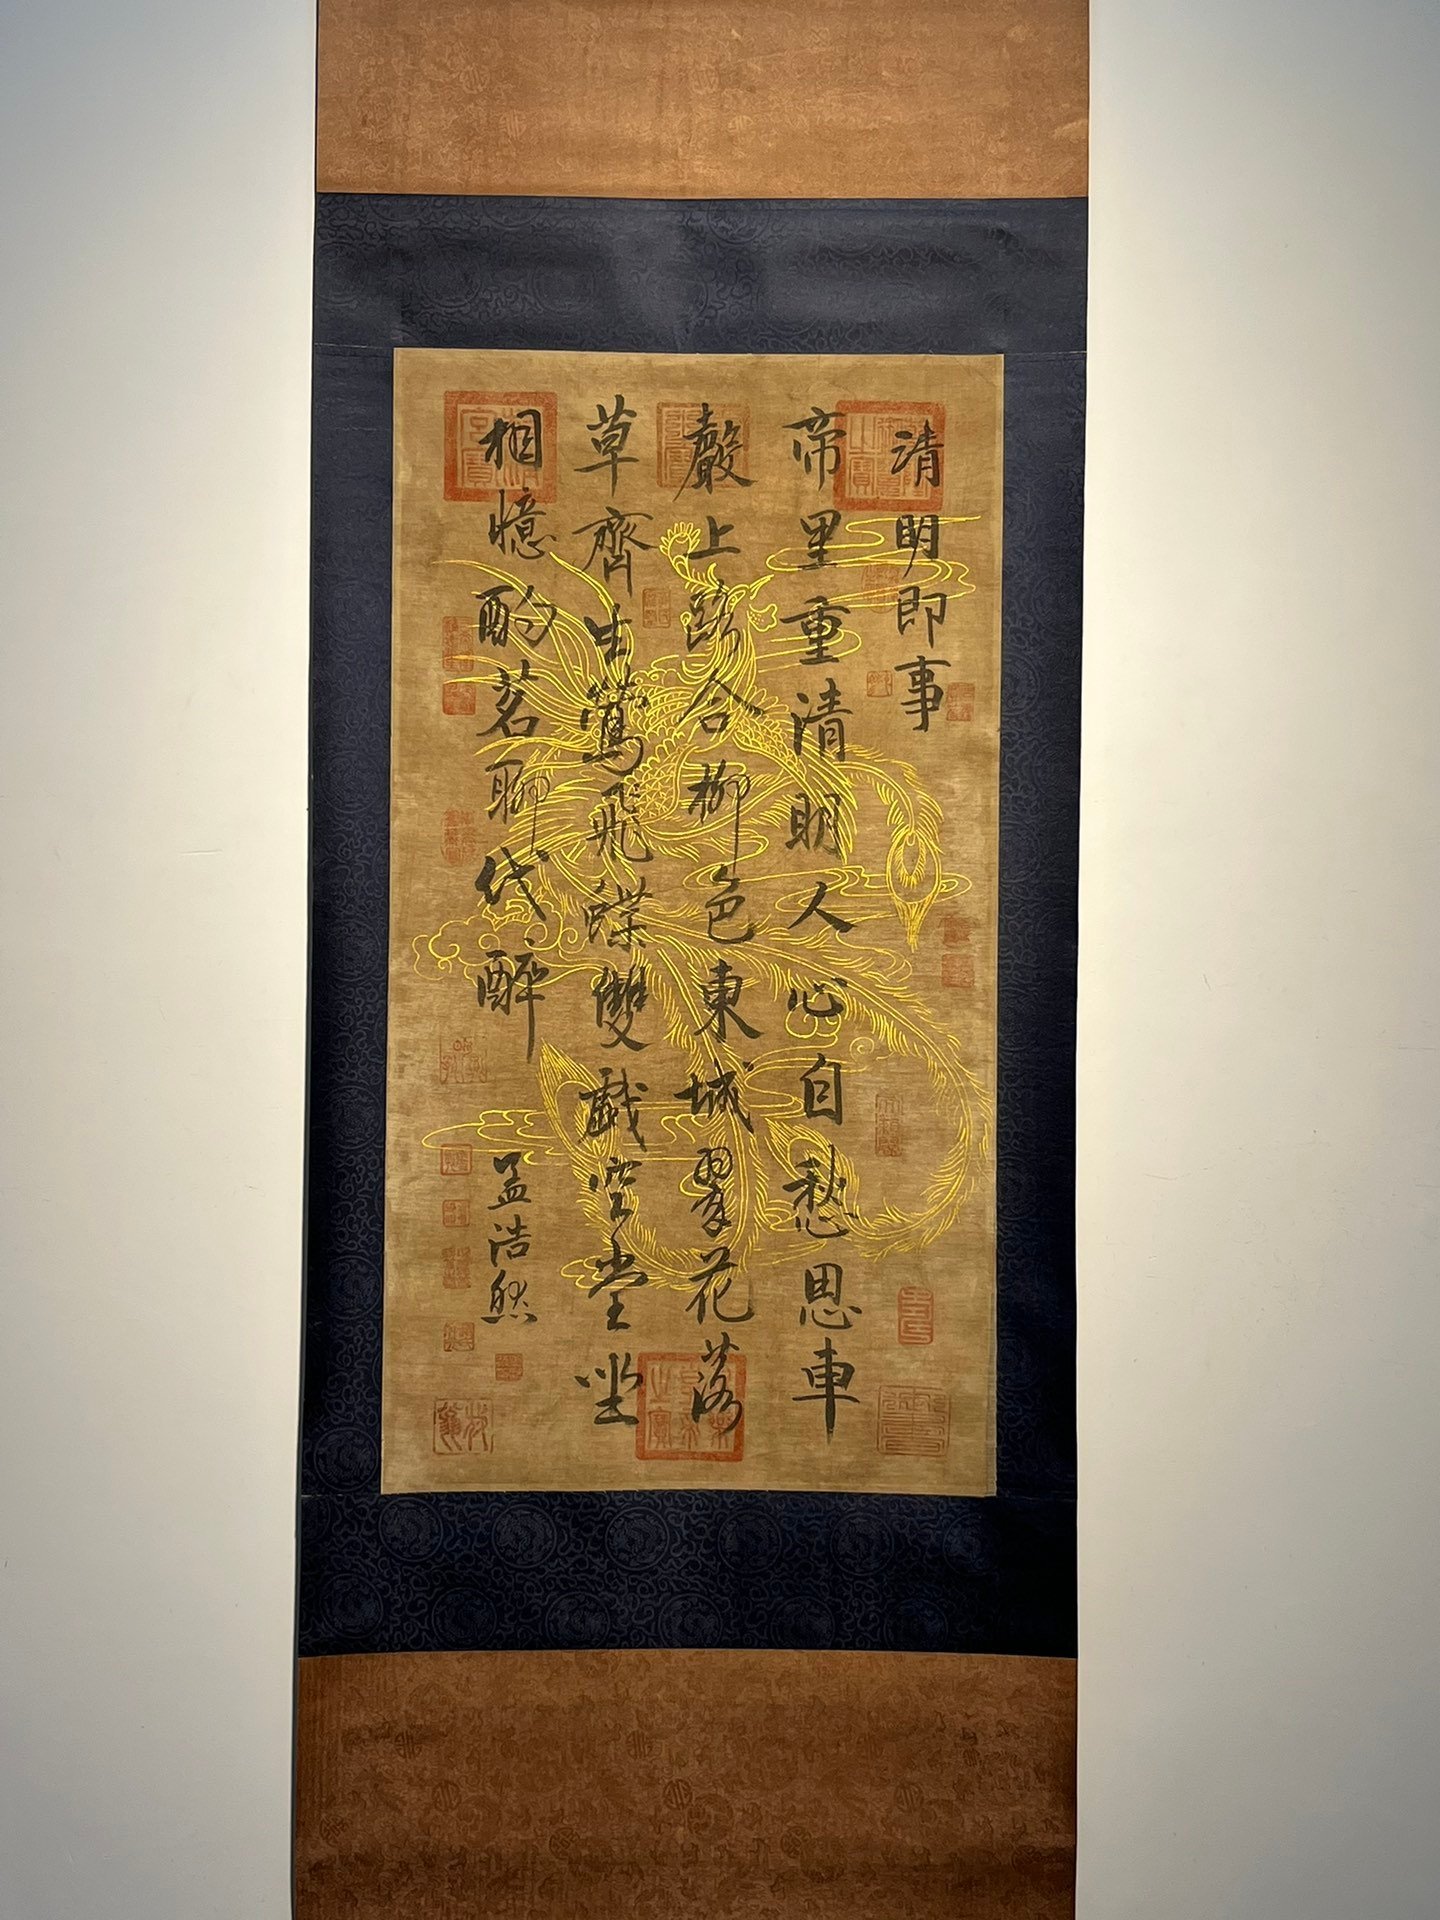 清明即事
帝里重清明人心自愁思車
聲上路合柳色東城翠花落
草齊生鶯飛蝶雙戲空堂坐
相憶酌茗聊代醉
孟浩然